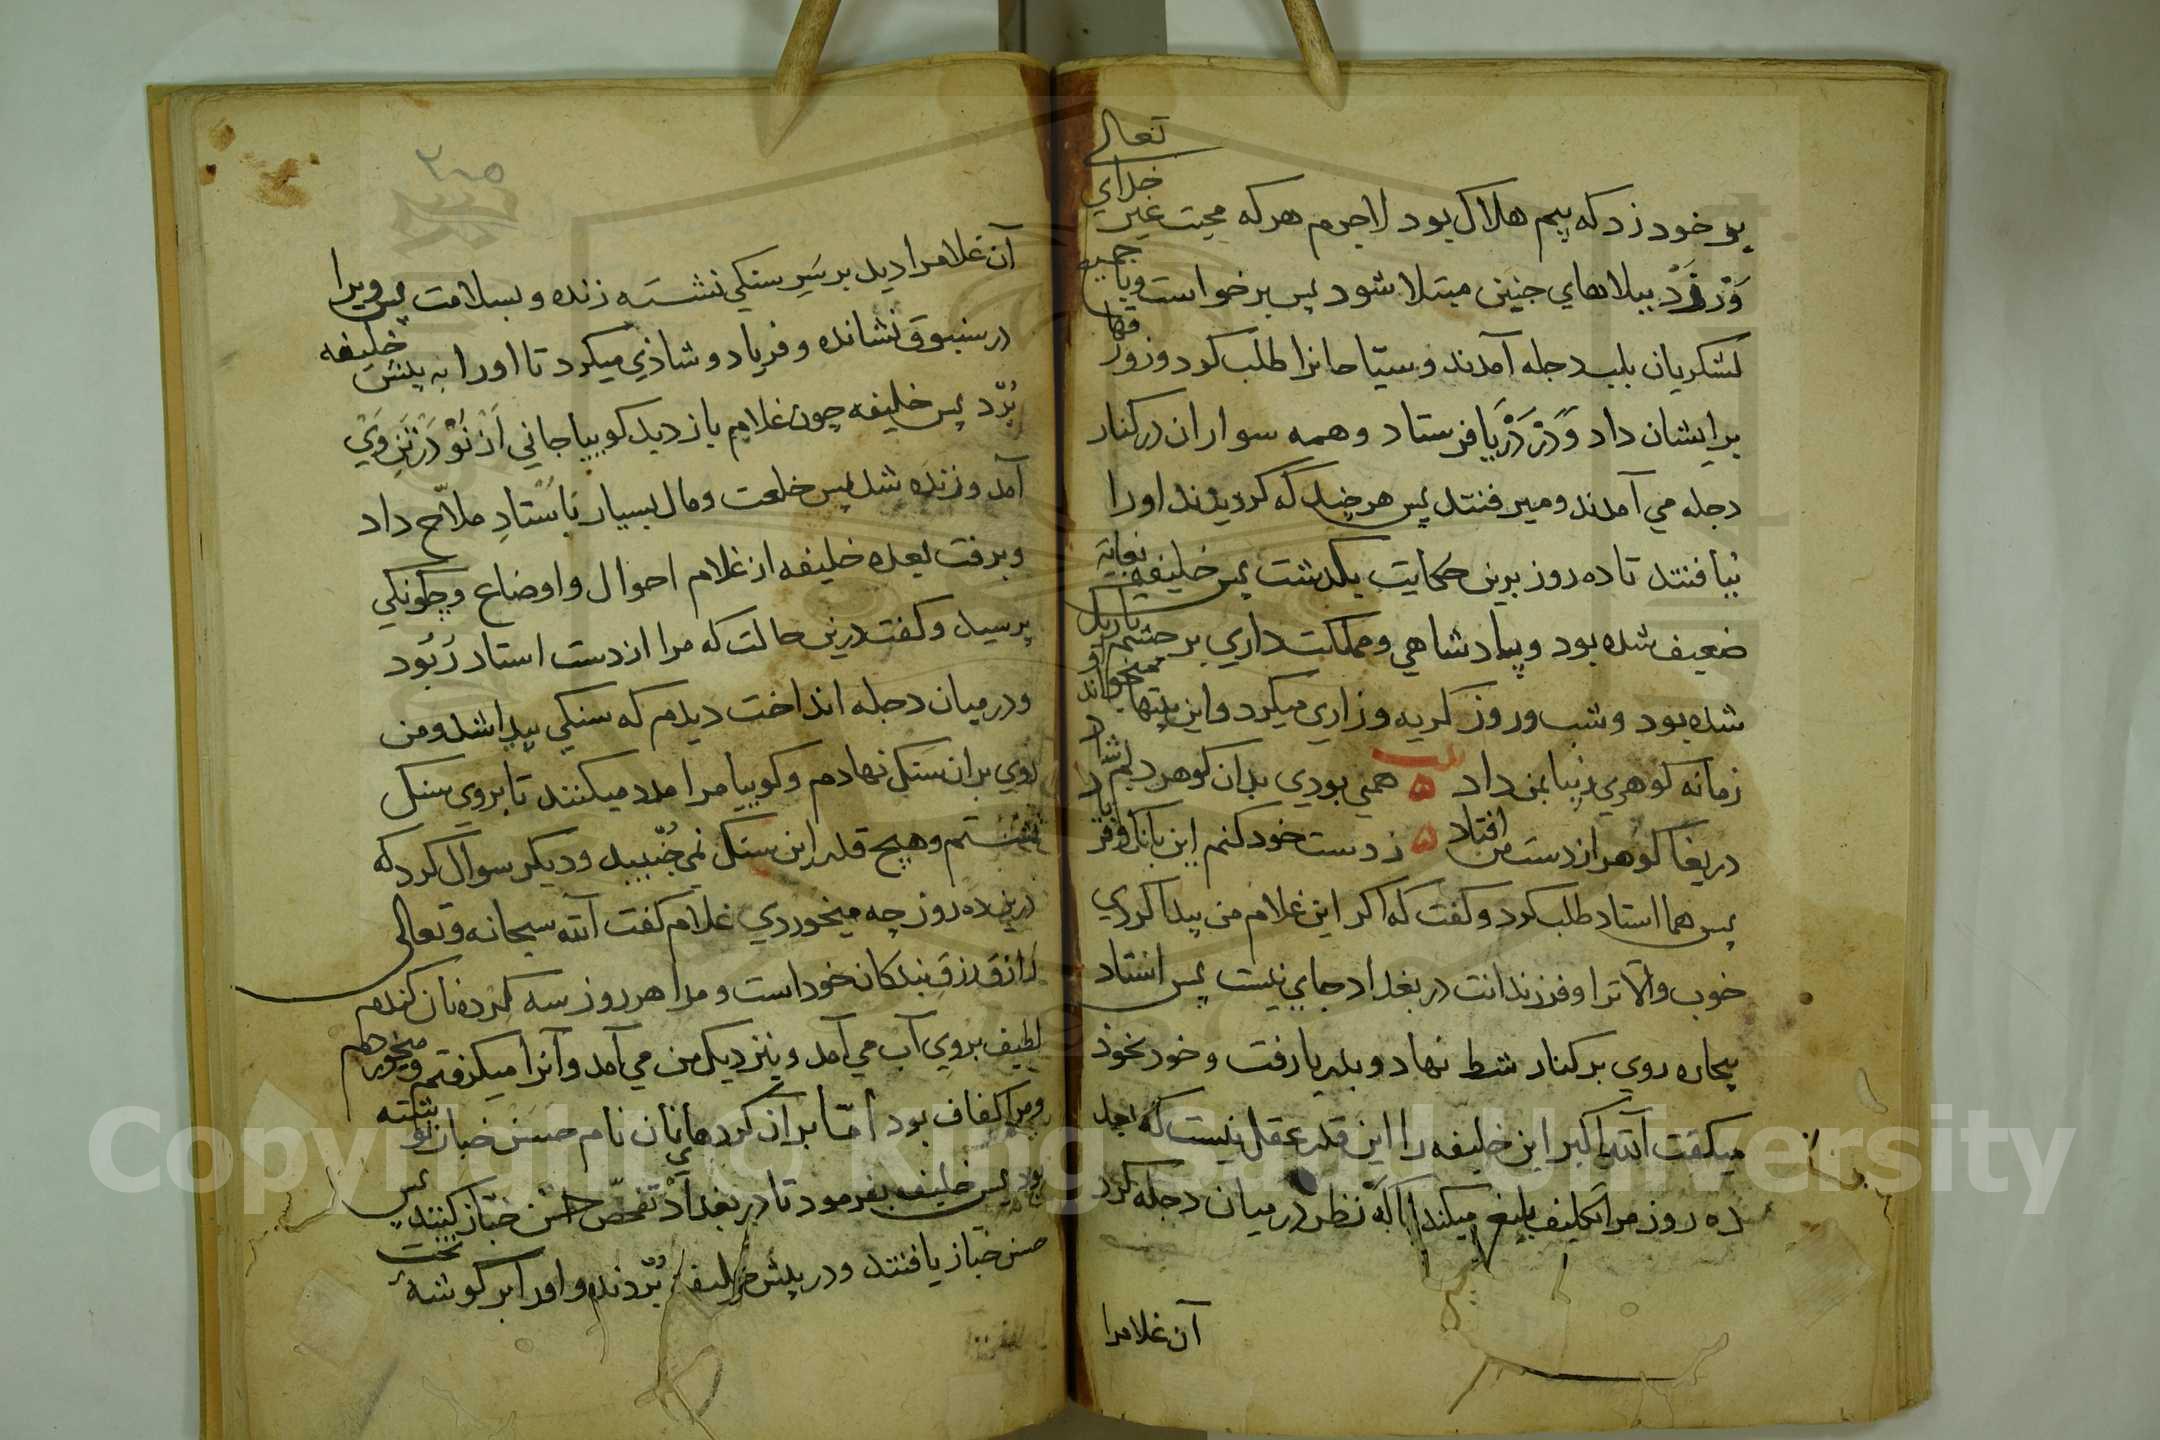 تعالی
خدای
بر خود زد که بیم هلاک بود لاجرم هر که محبت غیر
وَرْزَدْ ببلاهای جنین مبتلا شود پس برخواست وبا جمیع
لشکریان بلب دجله آمدند وسیّاحانرا طلب کرد وزورقها
برایشان داد وَدَرْ دَرْیا فرستاد وهمه سواران در کنار
دجله می آمدند ومیرفتند پس هر چند که کردیدند اورا
نیافتند تا ده روز برین حکایت بکدشت پس خلیفه بغایة
ضعیف شده بود وپادشاهی ومملکت داری بر چشم او تاریک
شده بود وشب وروز کریه وزاری میکرد واین بیتها میخواند
زمانه کوهری زیبا بمن داد ۵ همی بودی بدان کوهر دلم شاد
دریغا کوهر از دست من افتاد ۵ ز دست خود کنم این بانک وفریاد
پس هما استاد طلب کرد وکفت که اکر این غلام من پیدا کردی
خوب والّا ترا وفرزندانت در بغداد جای نیست پس استاد
بیچاره روی بر کنار شط نهاد وبدریا رفت وخود بخود
میکفت الله اکبر این خلیفه را این قدر عقل نیست که بعد
ده روز مرا تکلیف بلیغ میکند ناکَه نظر در میان دجله کرد
آن غلامرا
۲۰۵
آن غلامرا دید بر سَرِ سنکی نشسته زنده وبسلامت پس ویرا
در سنبوق نشانده وفریاد وشاذی میکرد تا اورا به پیش خلیفه
بُرد پس خلیفه چون غلام باز دید کوییا جانی اَزْ نُوْ دَرْ تَنِ وَیْ
آمد وزنده شد پس خلعت ومال بسیار باُستادِ ملاّح داد
وبرفت بعده خلیفه از غلام احوال واوضاع وچکونکی
پرسید وکفت درین حالت که مرا از دست استاد رُبُود
ودر میان دجله انداخت دیدم که سنکی پیدا شد ومن
روی بران سَنک نهادم وکوییا مرا مدد میکنند تا بروی سنک
نشستم وهیچ قدر این سنک نمی جُنبید ودیکر سوال کرد که
درین ده روز چه میخوردی غلام کفت الله سبحانه وتعالی
رازق رزقِ بندکان خود است ومرا هر روز سه کرده نان کندم
لطیف بروی آب می آمد وبنزدیک من می آمد وآنرا میکرفتم ومیخوردم
ومرا کفاف بود امّا بران کردهای نان نام حسَن خباز نوشته
بود پس خلیفه بفرمود تا در بغداد تفحّص حسَن خبّاز کنند پس
حسن خبّاز یافتند ودر پیش خلیفه بُردند واورا بر کوشهٔ تخت